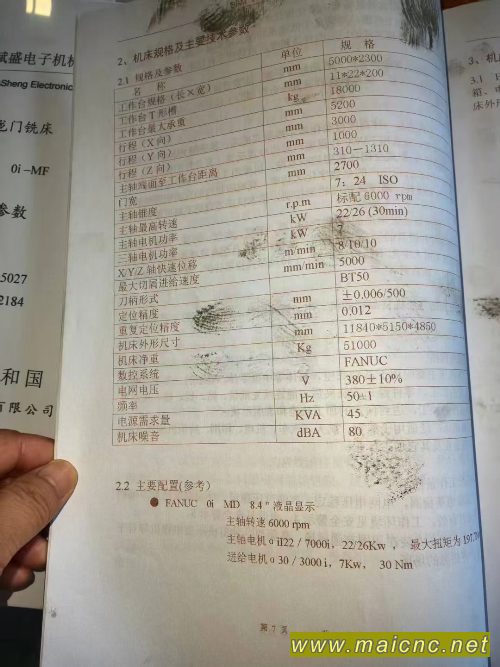 盛电子机械
Sheng Electronic
龙门铣床
0i-MF
参数
5027
2184
和国
有限公司
2、机床规格及主要技术参数
2.1 规格及参数
名 称 单位 规 格
工作台规格(长×宽) mm 5000*2300
工作台T形槽 mm 11*22*200
工作台最大承重 kg 18000
行程(X向) mm 5200
行程(Y向) mm 3000
行程(Z向) mm 1000
主轴端面至工作台距离 mm 310-1310
门宽 mm 2700
主轴锥度 7：24 ISO
主轴最高转速 r.p.m 标配6000 rpm
主轴电机功率 kW 22/26 (30min)
三轴电机功率 kW 7
X/Y/Z轴快速位移 m/min 8/10/10
最大切屑进给速度 mm/min 5000
刀柄形式 BT50
定位精度 mm ±0.006/500
重复定位精度 mm 0.012
机床外形尺寸 mm 11840*5150*4850
机床净重 Kg 51000
数控系统 FANUC
电网电压 V 380±10%
频率 Hz 50±1
电源需求量 KVA 45
机床噪音 dBA 80
2.2 主要配置(参考)
● FANUC 0i MD 8.4"液晶显示
主轴转速 6000 rpm
主轴电机αiI22/7000i，22/26Kw ，最大扭矩为197.7
送给电机α30/3000i，7Kw， 30 Nm
第 7 页
3、机
3.1
箱、
床外
www.maicnc.net